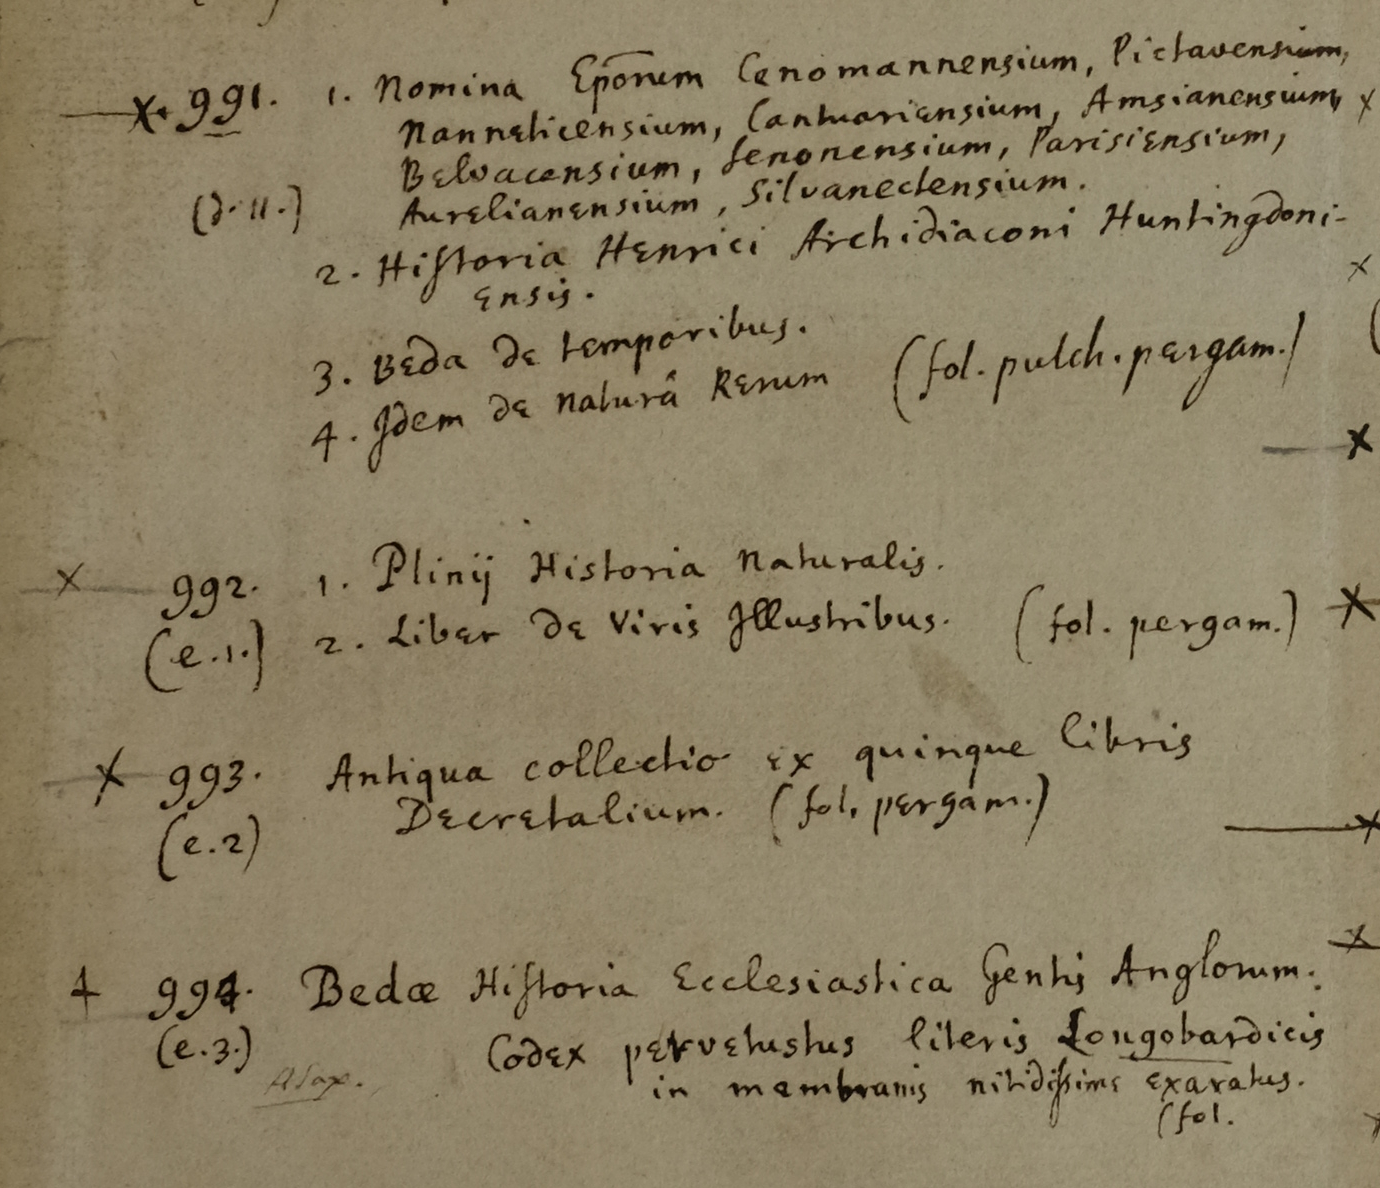 991. 1. Nomina Ep̄orum Cenomannensium, Pictavensium,
Nanneticensium, Cantuariensium, Amsianensium,
Belvacensium, Senonensium, Parisiensium,
(d.11.) Aurelianensium, Silvanectensium.
2. Hiſtoria Henrici Archidiaconi Huntingdoni-
ensis.
3. Beda de temporibus.
4. Idem de naturâ Rerum (fol. pulch. pergam.)
992. 1. Plinij Historia naturalis.
(e.1.) 2. Liber de Viris Illustribus. (fol. pergam.)
993. Antiqua collectio ex quinque libris
(e.2) Decretalium. (fol. pergam.)
994. Bedæ Hiſtoria Ecclesiastica Gentis Anglorum.
(e.3.) Codex pervetustus literis Longobardicis
in membranis nitidiſsime exaratus.
(fol.